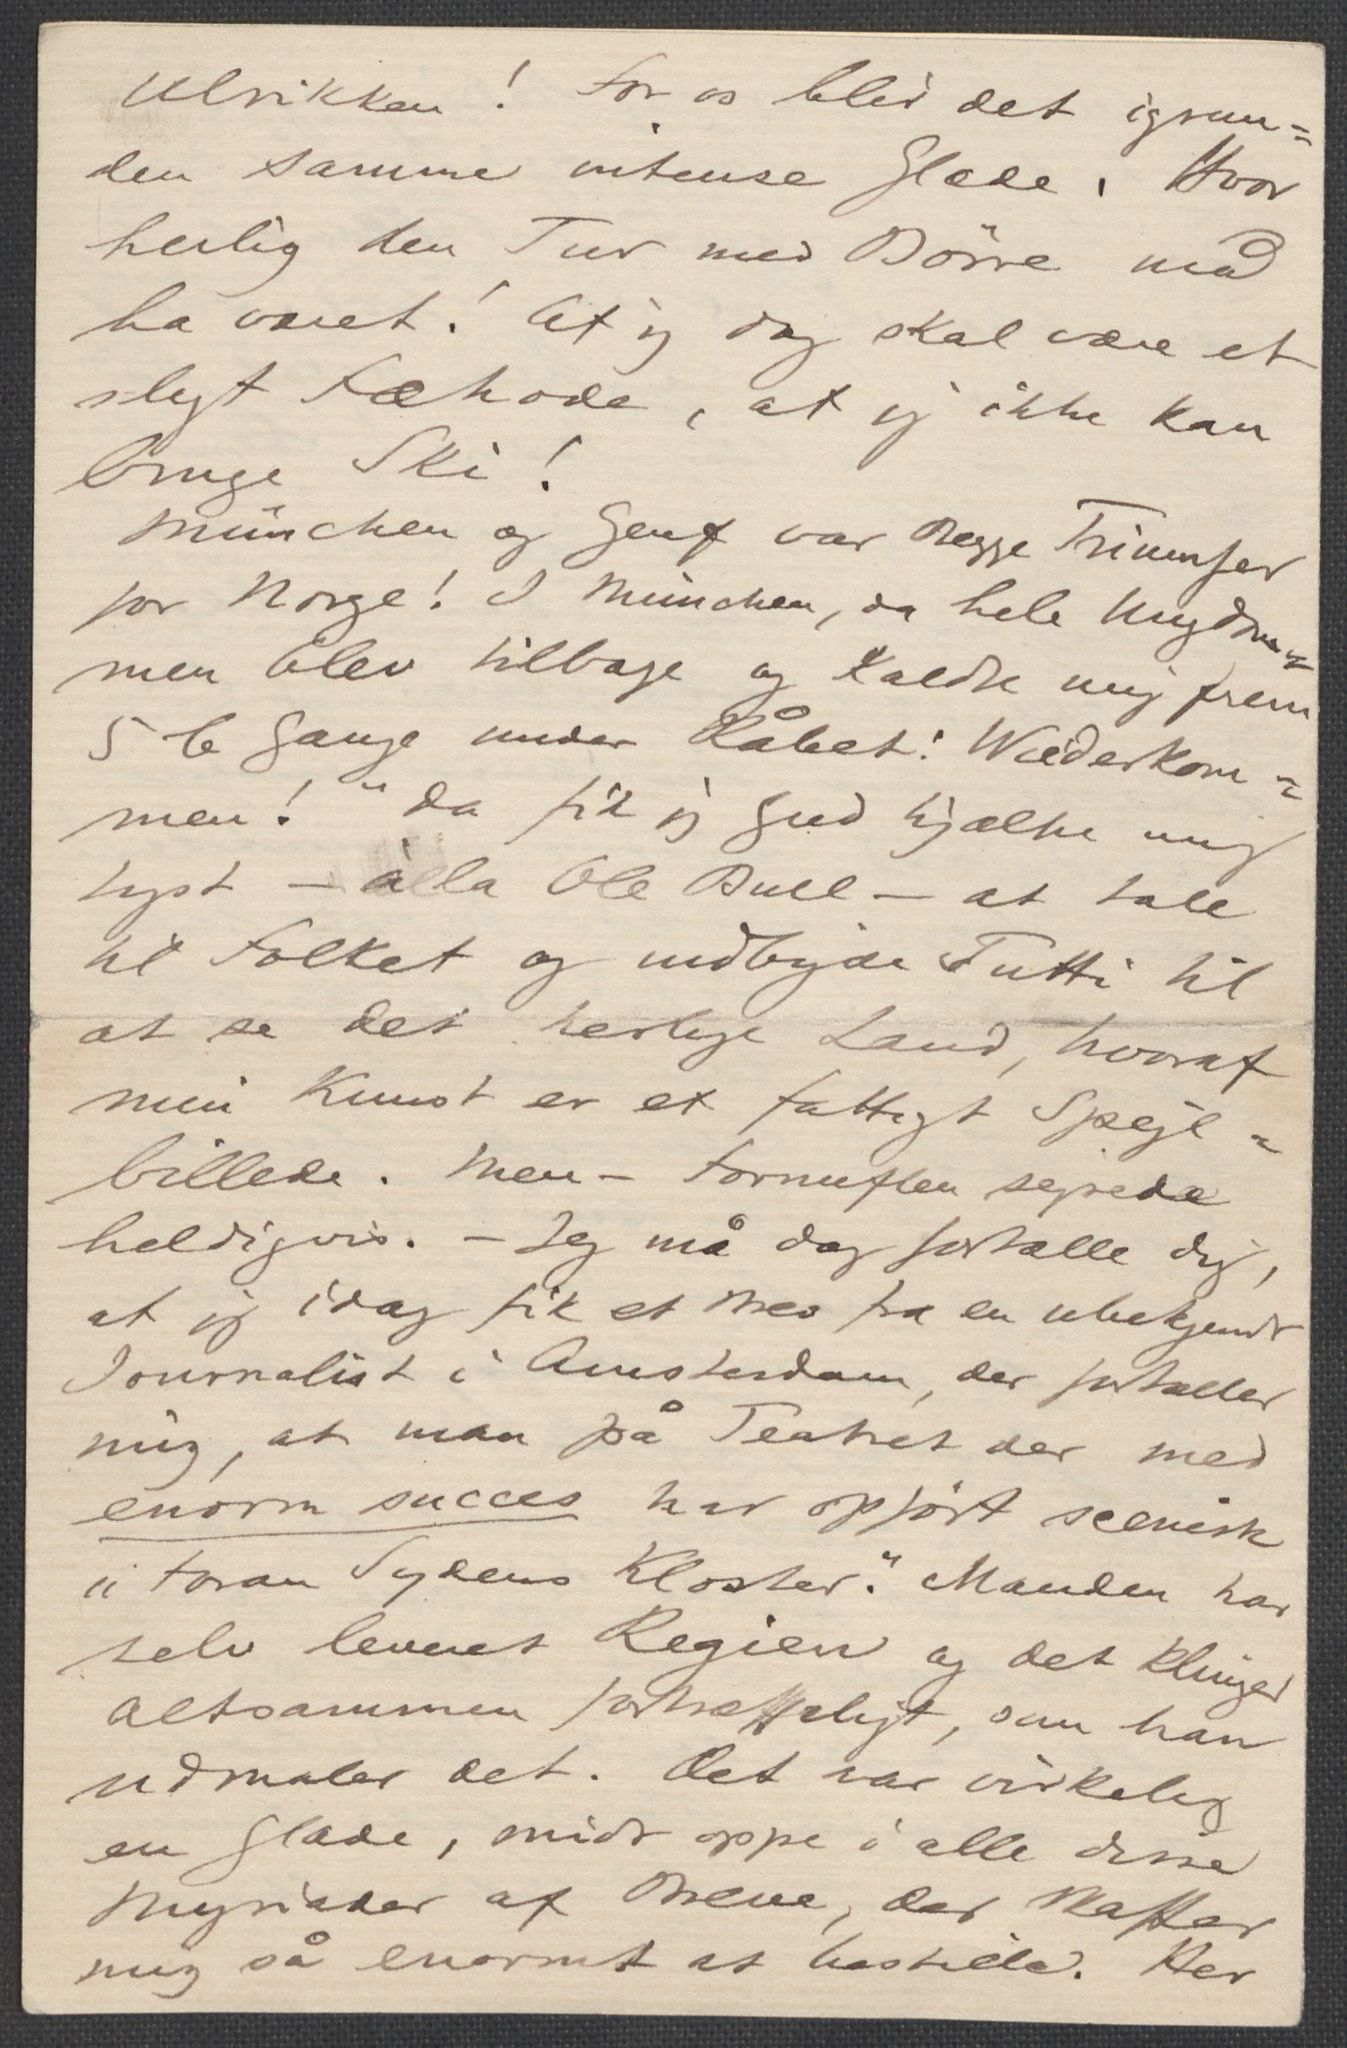 Ulrikken! For os blev det igrun=
den samme intense Glæde. Hvor
herlig den Tur med Börre må
ha været! At jeg dog skal være et
sligt Fæhode, at jeg ikke kan
bruge Ski!
München og Genf var Begge Triumfer
for Norge! I München, da hele Ungdom=
men blev tilbage og kaldte mig frem
5 6 Gange under Råbet: Wiederkom=
men!" da fik jeg Gud hjælpe mig
Lyst – àlla Ole Bull – at tale
til Folket og indbyde Tutti til
at se det herlige Land, hvoraf
min Kunst er et fattigt Spejl=
billede. Men – Fornuften sejrede
heldigvis. – Jeg må dog fortælle dig,
at jeg idag fik et Brev fra en ubekjendt
Journalist i Amsterdam, der fortæller
mig, at man på Teatret der med
enorm succes har opført scenisk
"Foran Sydens Kloster." Manden har
selv levert Regien og det klinger
altsammen fortræffeligt, som han
udmaler det. Det var virkelig
en Glæde, midt oppe i alle disse
Myriader af Breve, der skaffer
mig så enormt at bestille. Her